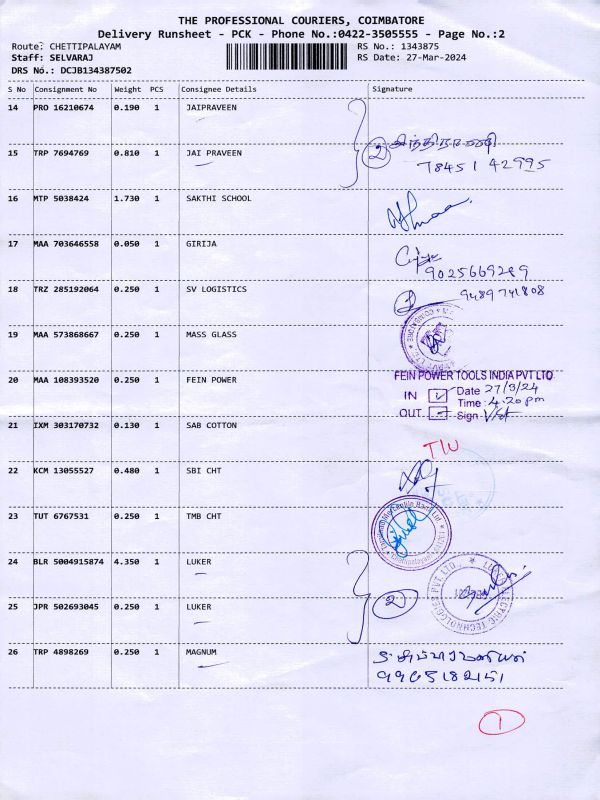 THE PROFESSIONAL COURIERS, COIMBATORE
Delivery Runsheet - PCK - Phone No.:0422-3505555 - Page No.:2
Route: CHETTIPALAYAM RS No.: 1343875
Staff: SELVARAJ RS Date: 27-Mar-2024
DRS No.: DCJB134387502
S No Consignment No Weight PCS Consignee Details Signature
14 PRO 16210674 0.190 1 JAIPRAVEEN
15 TRP 7694769 0.810 1 JAI PRAVEEN 2
78451 42995
16 MTP 5038424 1.730 1 SAKTHI SCHOOL
17 MAA 703646558 0.050 1 GIRIJA
9025669289
18 TRZ 285192064 0.250 1 SV LOGISTICS
9489741808
19 MAA 573868667 0.250 1 MASS GLASS
20 MAA 108393520 0.250 1 FEIN POWER
FEIN POWER TOOLS INDIA PVT LTD
IN Date 27/3/24
Time : 4.20 pm
OUT Sign
21 IXM 303170732 0.130 1 SAB COTTON
22 KCM 13055527 0.480 1 SBI CHT
23 TUT 6767531 0.250 1 TMB CHT
24 BLR 5004915874 4.350 1 LUKER
25 JPR 502693045 0.250 1 LUKER 2
26 TRP 4898269 0.250 1 MAGNUM
9965182151
1